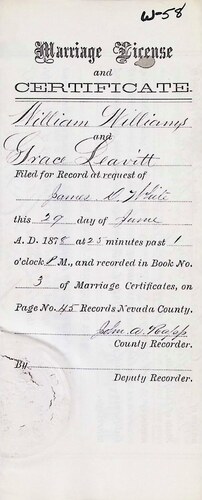 W-58
Marriage License
and
CERTIFICATE.
William Williams
and
Grace Leavitt
Filed for Record at request of
James D. White
this 29 day of June
A. D. 1878 at 25 minutes past 1
o'clock P M., and recorded in Book No.
3 of Marriage Certificates, on
Page No. 45 Records Nevada County.
John A. Rapp
County Recorder.
By
Deputy Recorder.